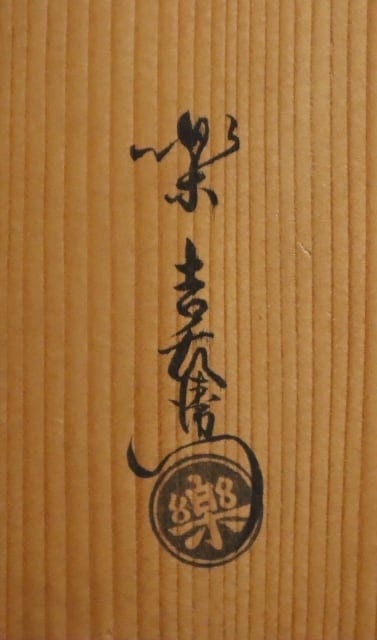 樂 吉左衛門
樂